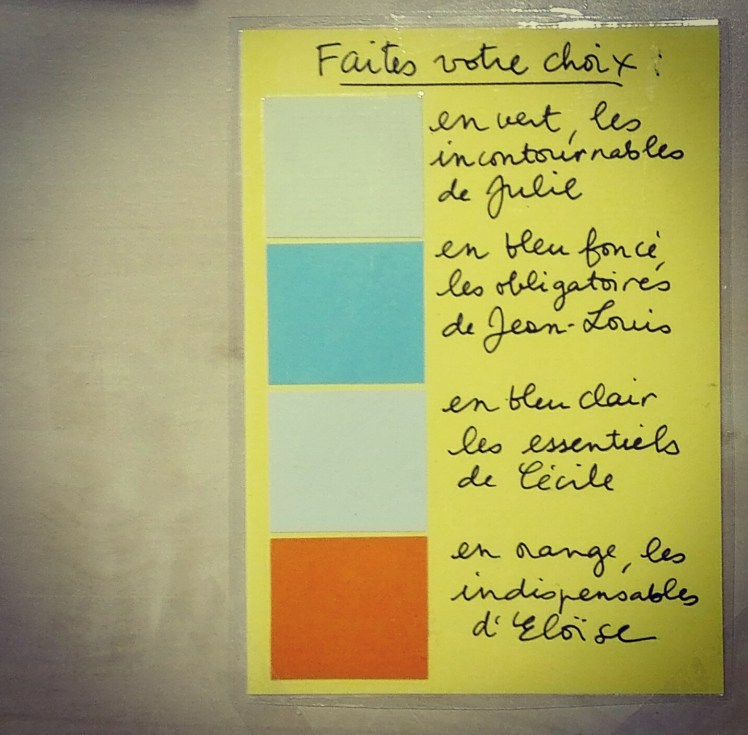 Faites votre choix :
en vert, les
incontournables
de Julie
en bleu foncé,
les obligatoires
de Jean-Louis
en bleu clair
les essentiels
de Cécile
en orange, les
indispensables
d'Eloïse